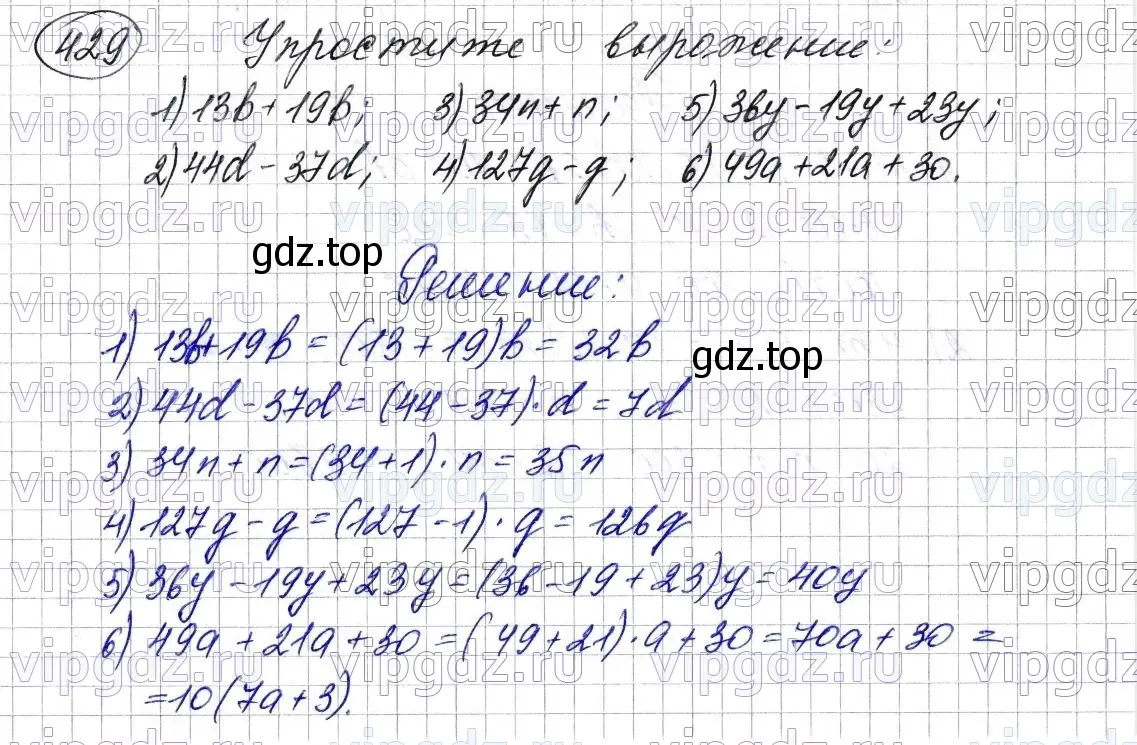 429 Упростите выражение:
1) 13b + 19b; 3) 34n + n; 5) 36y - 19y + 23y;
2) 44d - 37d; 4) 127g - g; 6) 49a + 21a + 30.
gdz.top
Решение:
1) 13b + 19b = (13 + 19)b = 32b
gdz.top
2) 44d - 37d = (44 - 37)·d = 7d
3) 34n + n = (34 + 1)·n = 35n
4) 127g - g = (127 - 1)·g = 126g
5) 36y - 19y + 23y = (36 - 19 + 23)y = 40y
6) 49a + 21a + 30 = (49 + 21)·a + 30 = 70a + 30 =
= 10(7a + 3).
vipgdz.ru